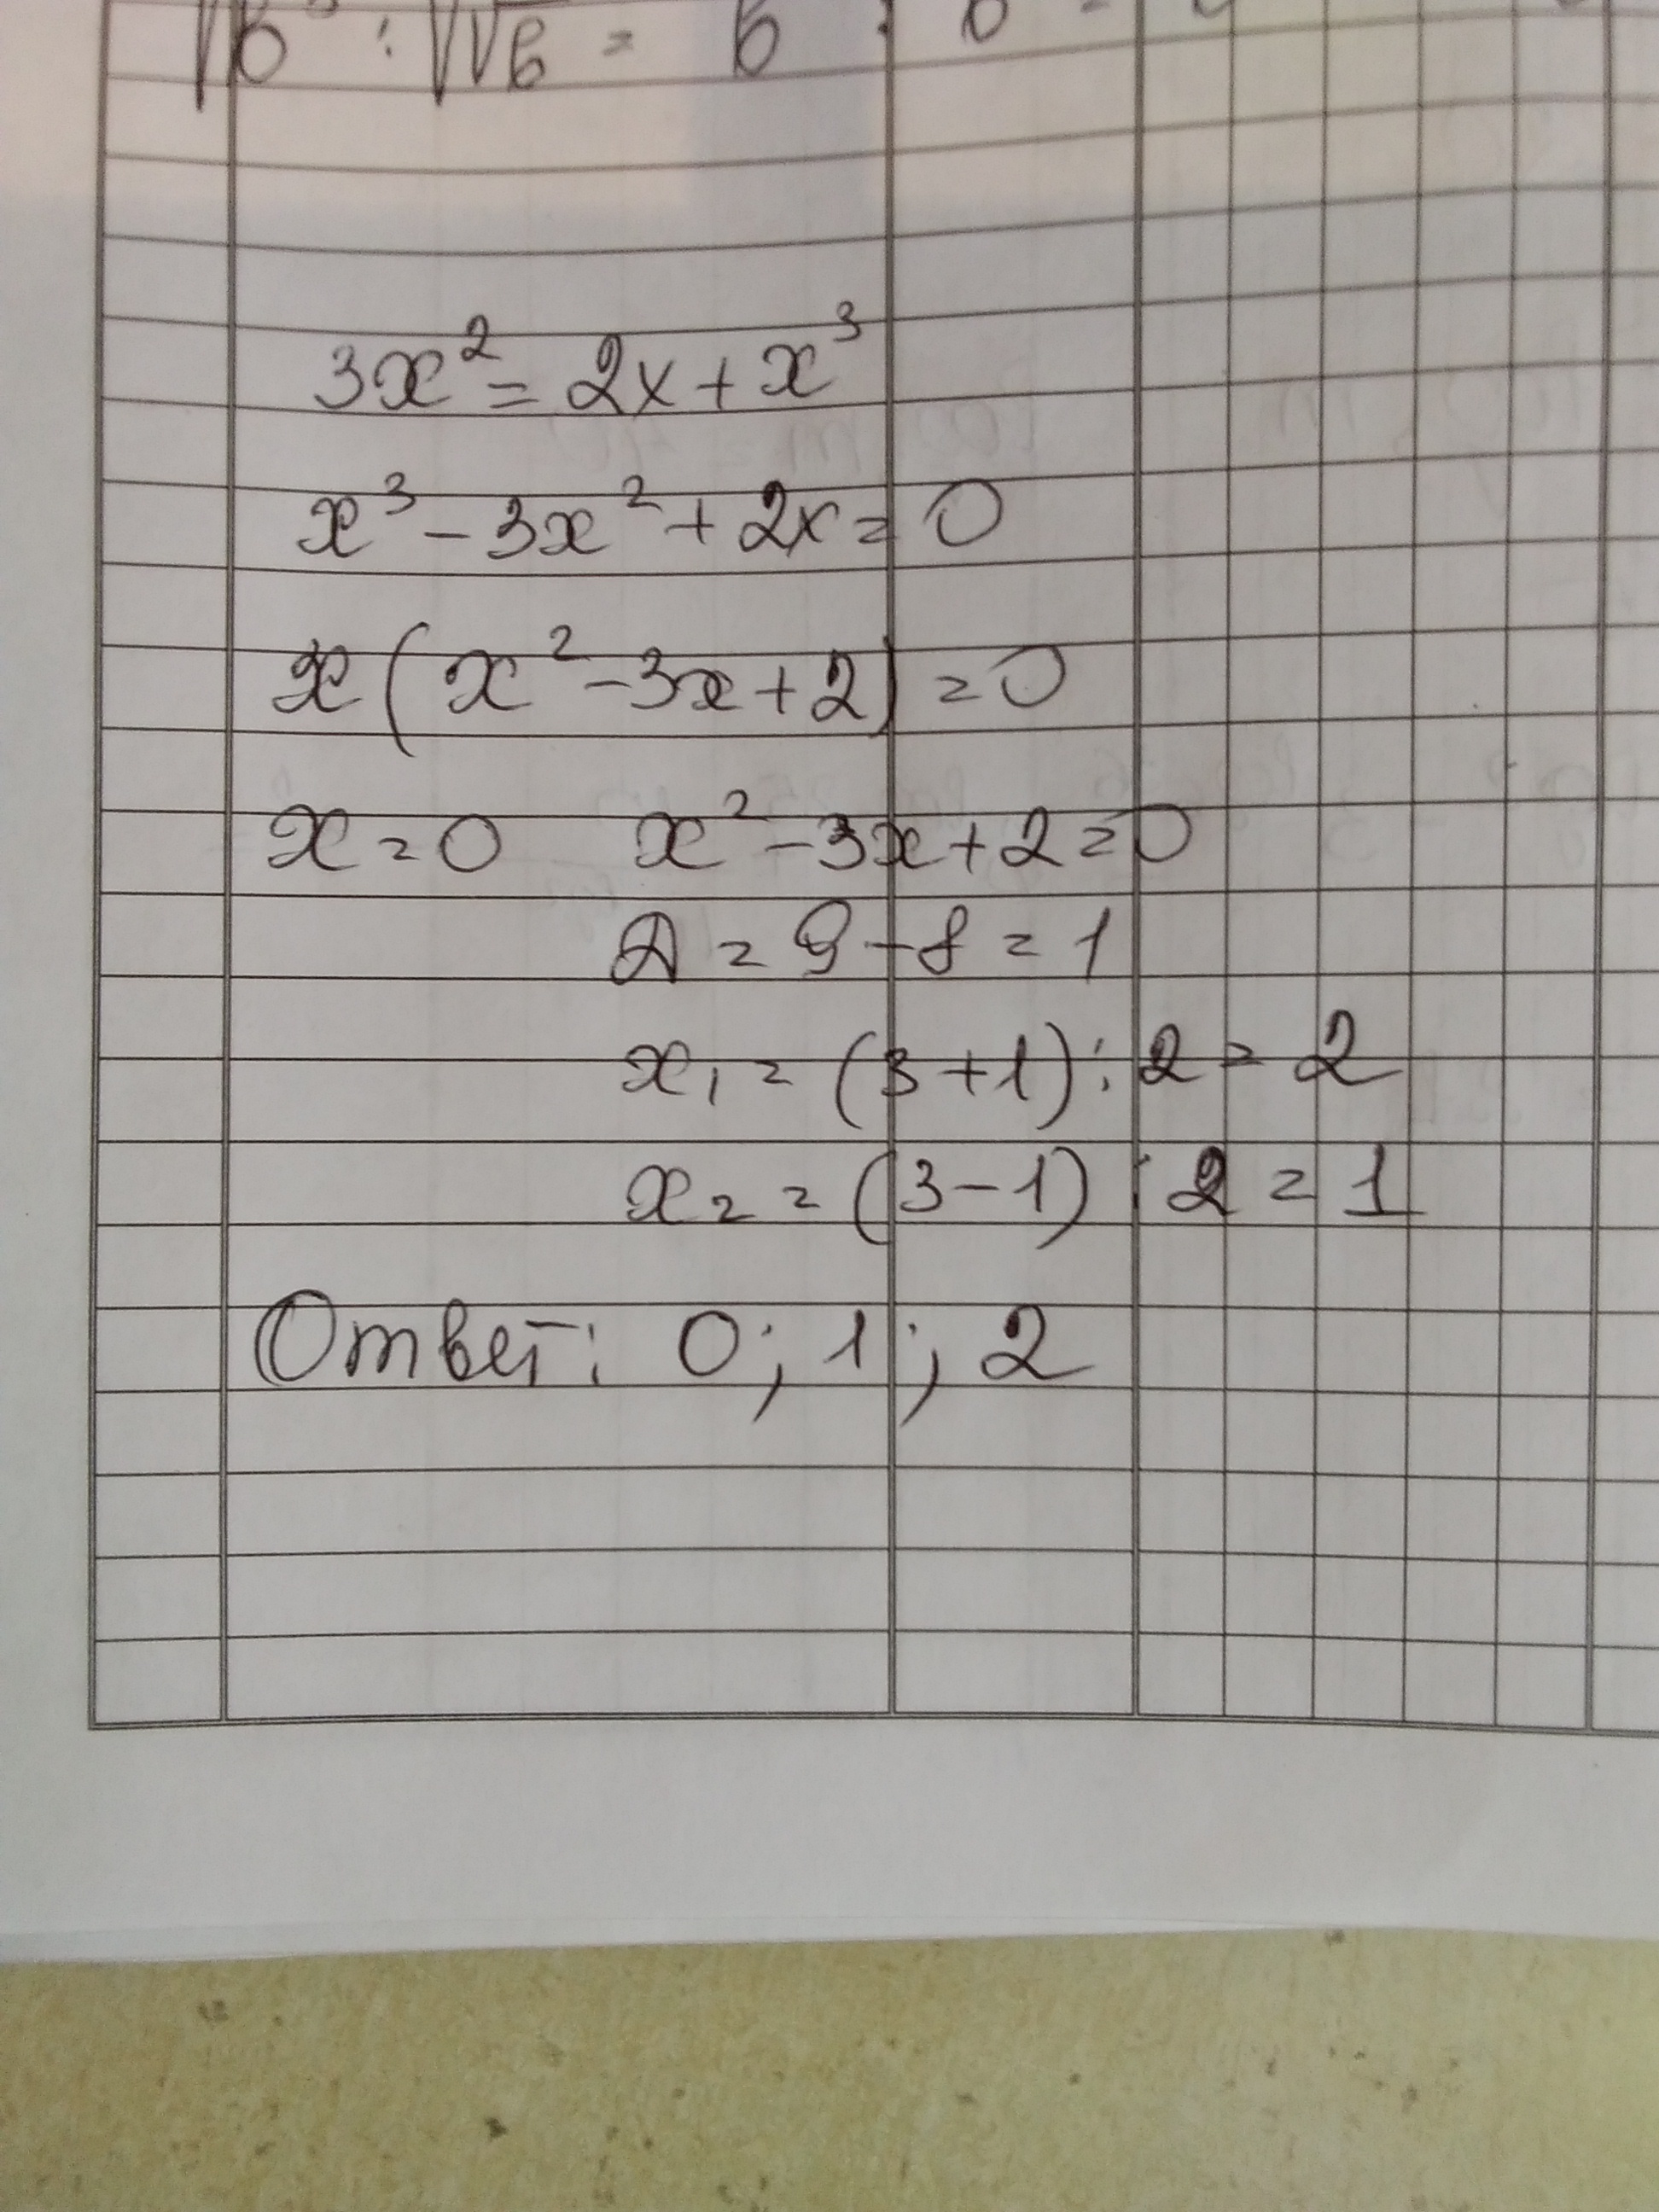 3x² = 2x + x³
x³ - 3x² + 2x = 0
x(x² - 3x + 2) = 0
x = 0 x² - 3x + 2 = 0
Д = 9 - 8 = 1
x₁ = (3 + 1) : 2 = 2
x₂ = (3 - 1) : 2 = 1
Ответ: 0; 1; 2